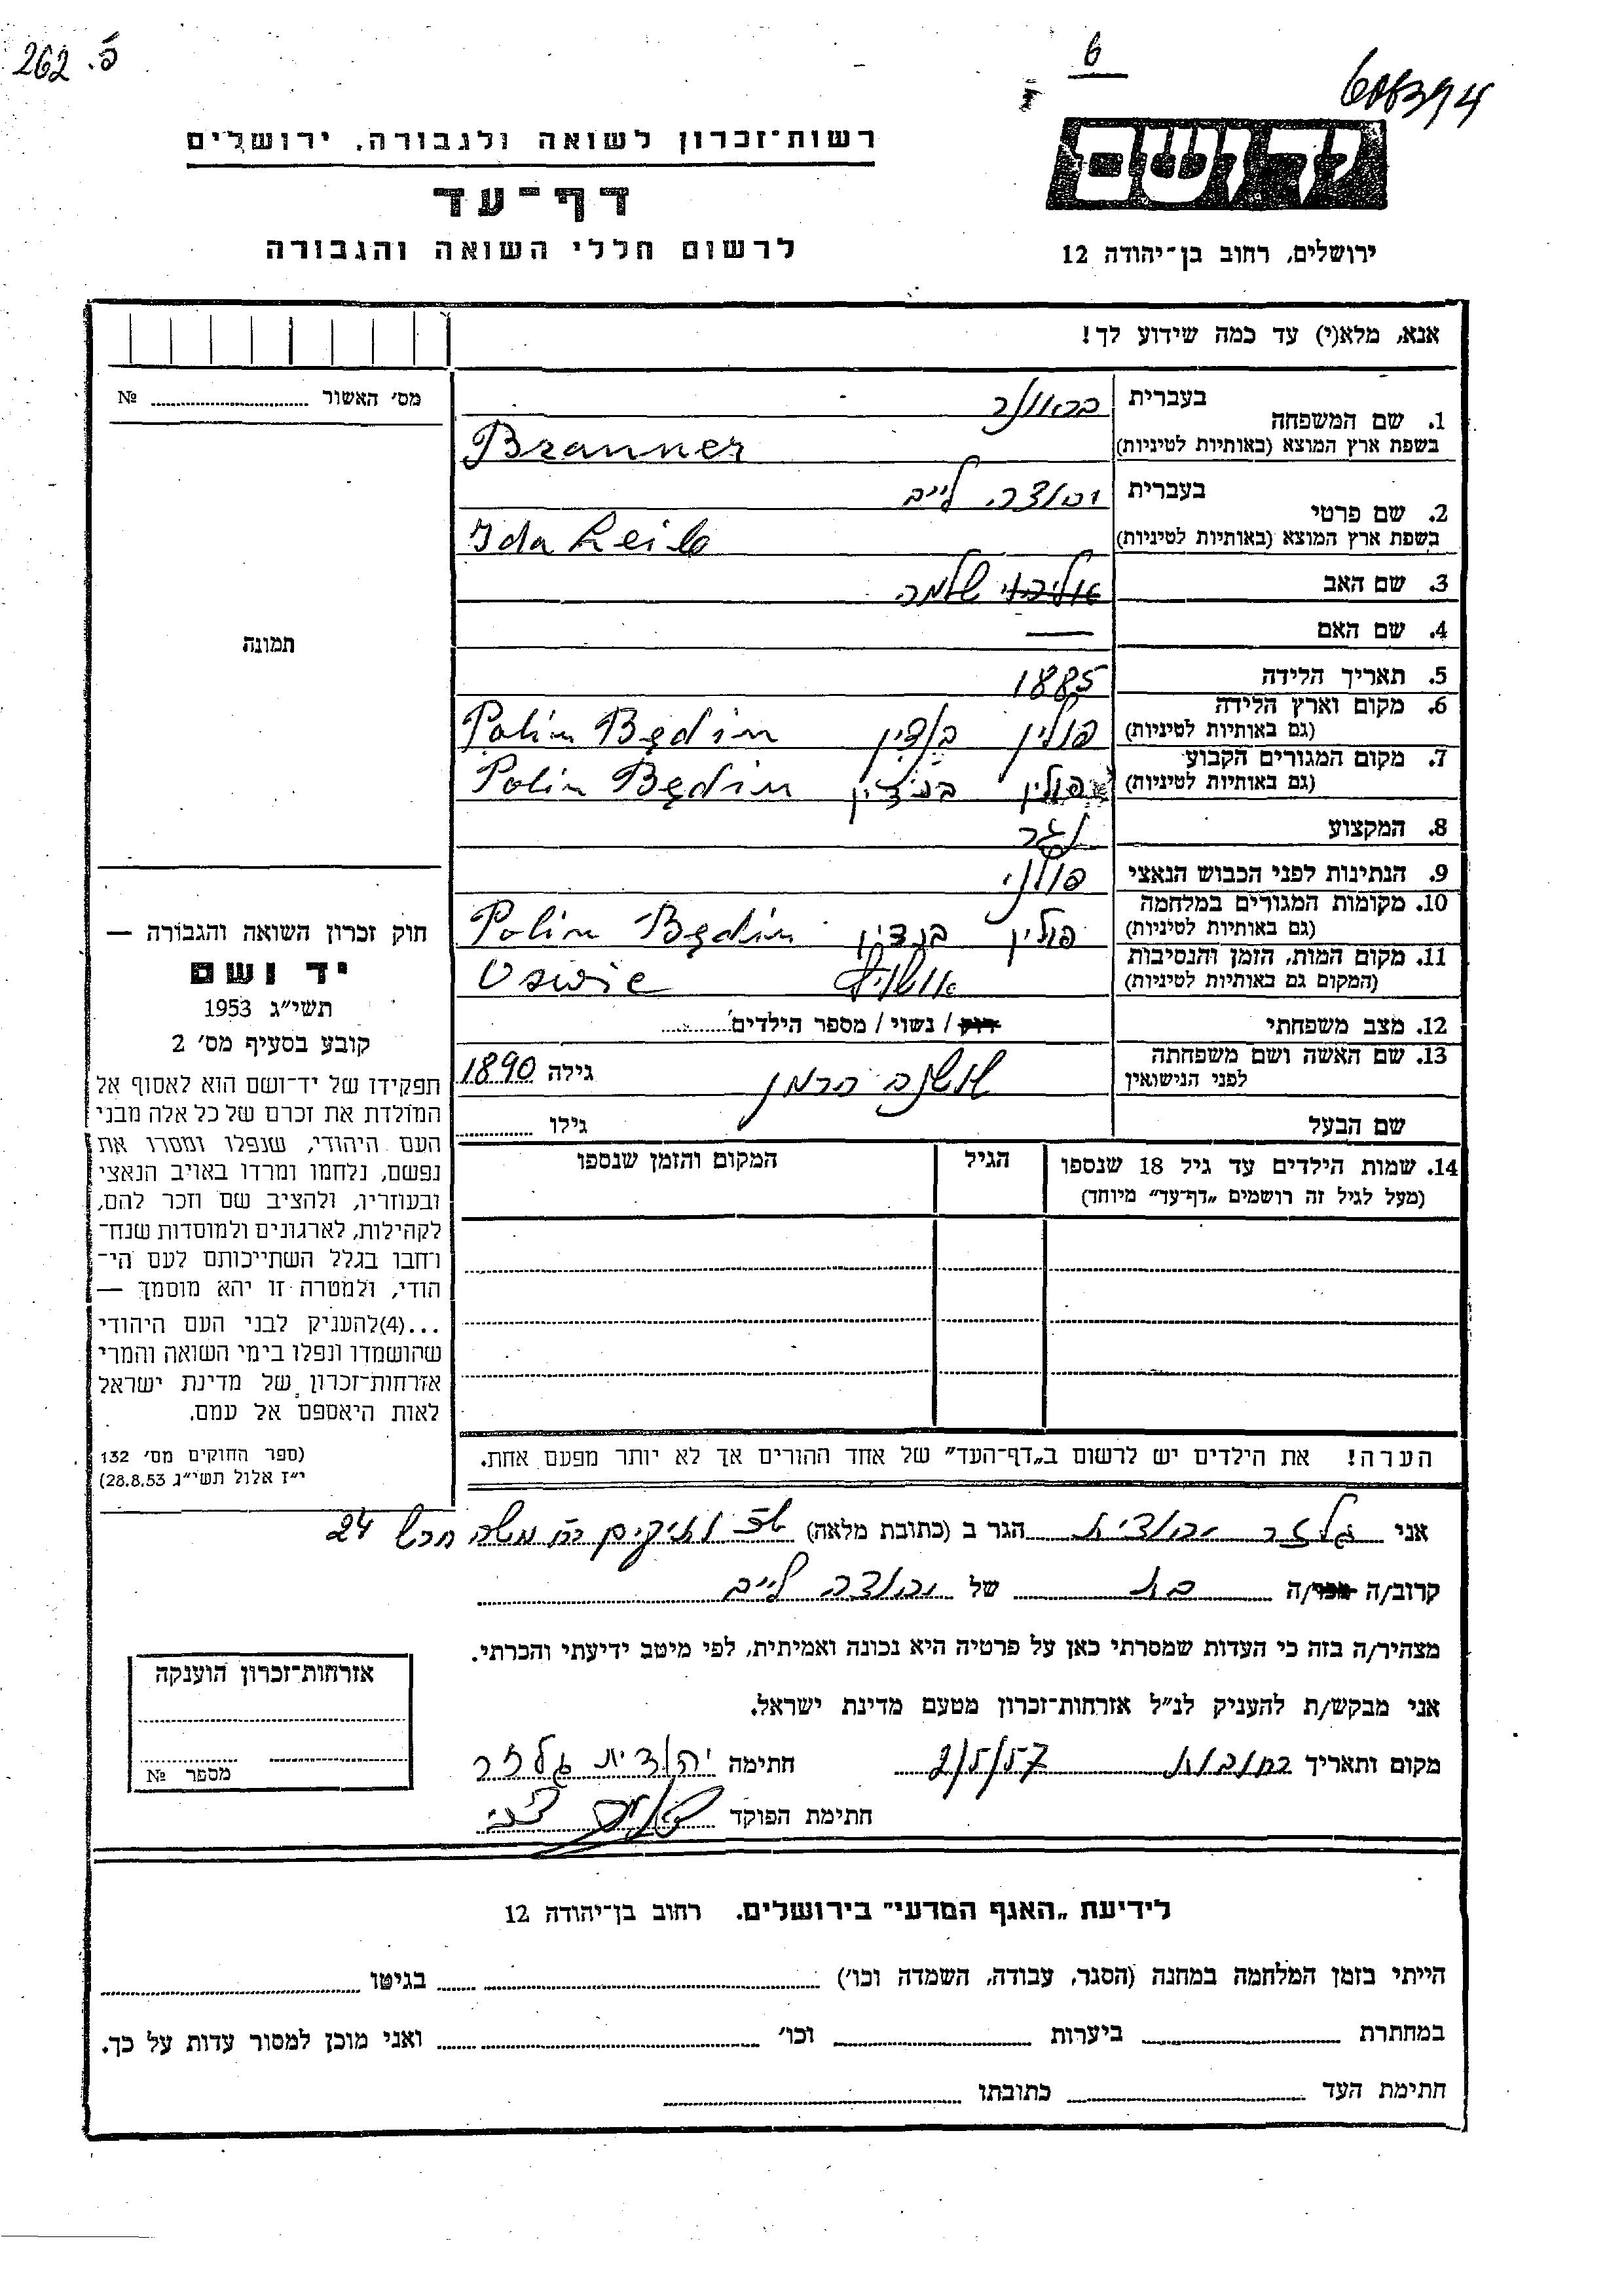 262 .פ
6
608394
רשות־זכרון לשואה ולגבורה, ירושלים
יד ושם
דף־עד
לרשום חללי השואה והגבורה
ירושלים, רחוב בן־יהודה 12
אנא, מלא(י) עד כמה שידוע לך!
מס׳ האשור № 
1. שם המשפחה
בעברית בראונר
בשפת ארץ המוצא (באותיות לטיניות) Branner
2. שם פרטי
בעברית יהודה לייב
בשפת ארץ המוצא (באותיות לטיניות) Ida Leib
3. שם האב שלמה
4. שם האם —
5. תאריך הלידה 1885
6. מקום וארץ הלידה
(גם באותיות לטיניות) פולין בנדין Polin Będin
7. מקום המגורים הקבוע
(גם באותיות לטיניות) פולין בנדין Polin Będin
8. המקצוע
9. הנתינות לפני הכבוש הנאצי פולני
10. מקומות המגורים במלחמה
(גם באותיות לטיניות) פולין בנדין Polin Będin
11. מקום המות, הזמן והנסיבות
(המקום גם באותיות לטיניות) Oswie
12. מצב משפחתי רוק / נשוי / מספר הילדים
13. שם האשה ושם משפחתה
לפני הנישואין שושנה הרמן גילה 1890
שם הבעל גילו
14. שמות הילדים עד גיל 18 שנספו
(מעל לגיל זה רושמים „דף־עד” מיוחד)
הגיל
המקום והזמן שנספו
תמונה
חוק זכרון השואה והגבורה —
יד ושם
תשי״ג 1953
קובע בסעיף מס׳ 2
תפקידו של יד־ושם הוא לאסוף אל
המולדת את זכרם של כל אלה מבני
העם היהודי, שנפלו ומסרו את
נפשם, נלחמו ומרדו באויב הנאצי
ובעוזריו, ולהציב שם וזכר להם,
לקהילות, לארגונים ולמוסדות שנח־
רחבו בגלל השתייכותם לעם הי־
הודי, ולמטרה זו יהא מוסמך —
...(4)להעניק לבני העם היהודי
שהושמדו ונפלו בימי השואה והמרי
אזרחות־זכרון של מדינת ישראל
לאות היאספם אל עמם.
(ספר החוקים מס׳ 132
י״ז אלול תשי״ג 28.8.53)
הערה! את הילדים יש לרשום ב„דף־העד” של אחד ההורים אך לא יותר מפעם אחת.
אני גלזר יהודית הגר ב (כתובת מלאה) 24
קרוב/ה מכר/ה בת של יהודה לייב
מצהיר/ה בזה כי העדות שמסרתי כאן על פרטיה היא נכונה ואמיתית, לפי מיטב ידיעתי והכרתי.
אני מבקש/ת להעניק לנ״ל אזרחות־זכרון מטעם מדינת ישראל.
מקום ותאריך רחובות 2/5/57 חתימה יהודית גלזר
חתימת הפוקד
אזרחות־זכרון הוענקה
מספר №
לידיעת „האגף המדעי” בירושלים. רחוב בן־יהודה 12
הייתי בזמן המלחמה במחנה (הסגר, עבודה, השמדה וכו׳) בגיטו
במחתרת ביערות וכו׳ ואני מוכן למסור עדות על כך.
חתימת העד כתובתו